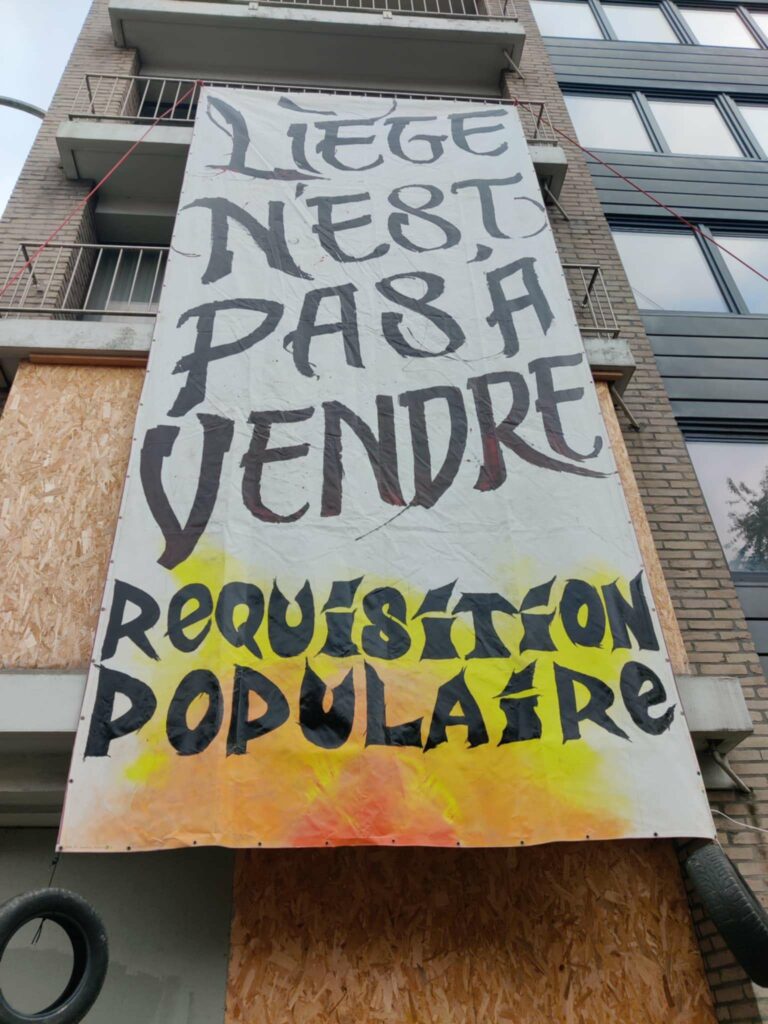 LiÈGE
N'EST
PAS À
VENDRE
ReQUiSiTiON
POPULAiRe